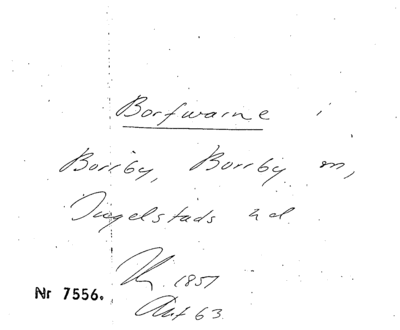 Borfwarne i
Borrby, Borrby sn,
Ingelstads hd.
1857
Nr 7556.
63.